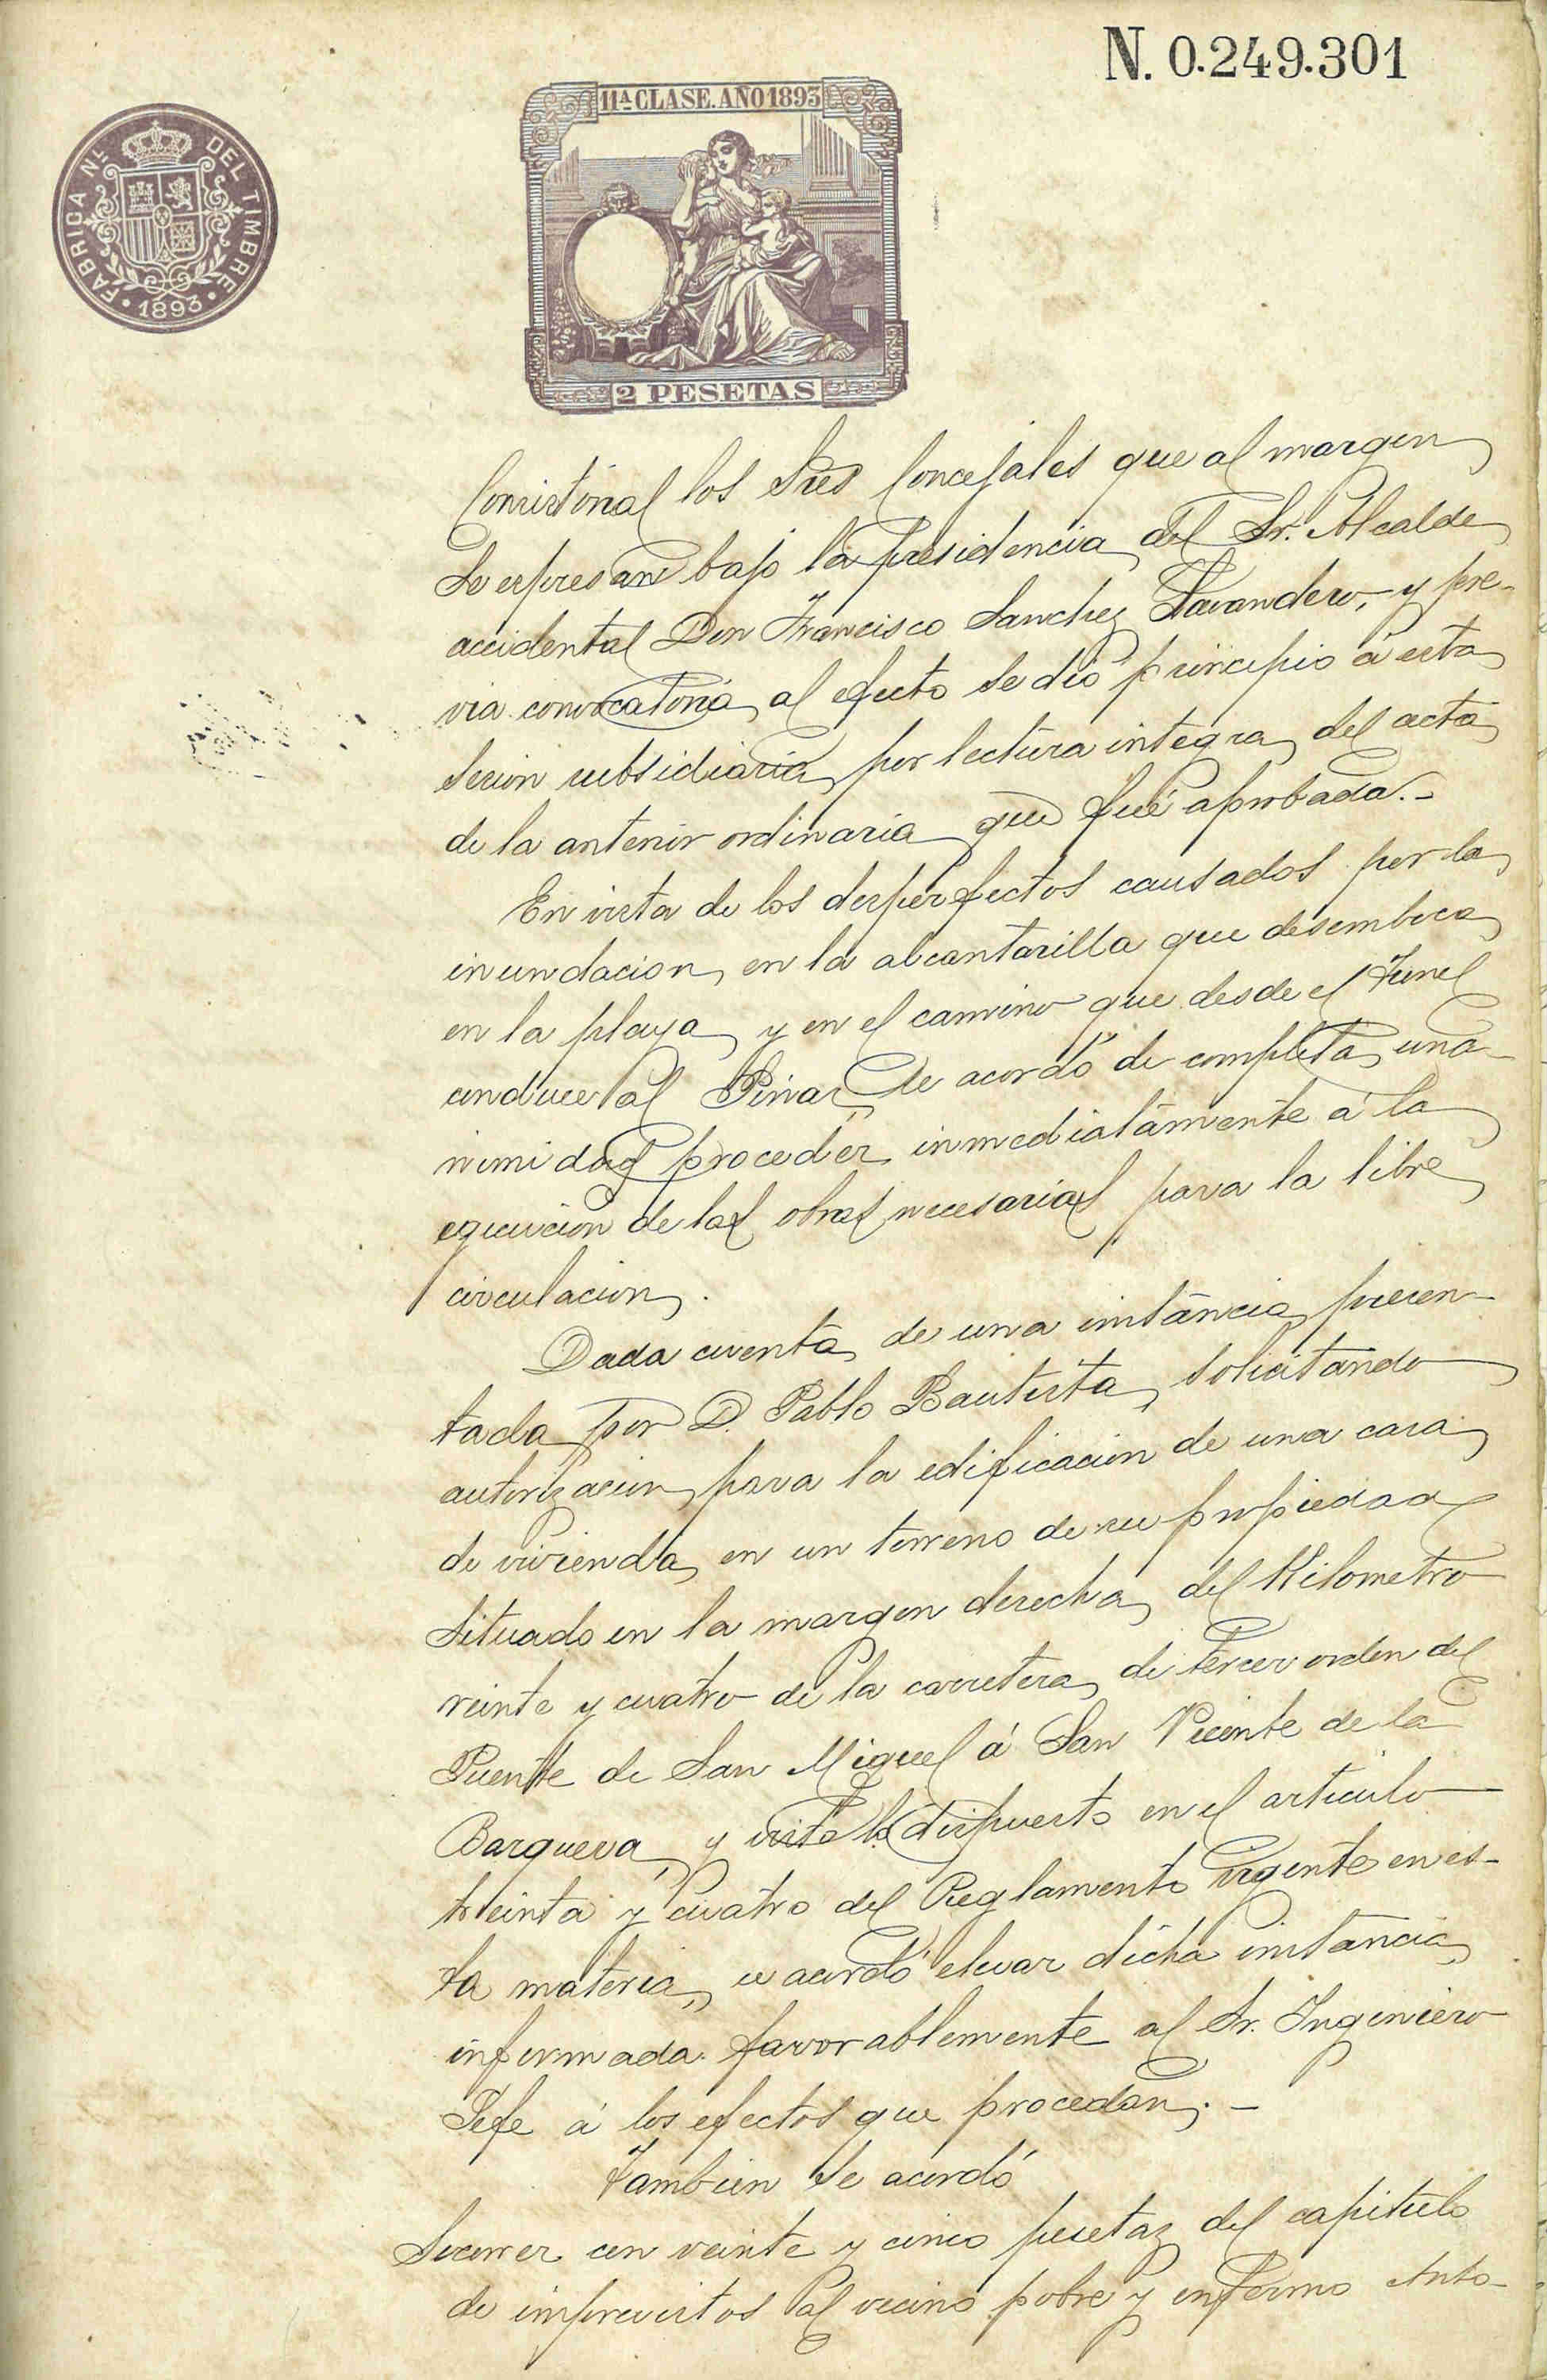 N. 0.249.301
11ª CLASE. AÑO 1893
FABRICA Nº DEL TIMBRE
1893
2 PESETAS
Consistorial los Sres Concejales que al margen
se expresan bajo la presidencia del Sr. Alcalde
accidental Don Francisco Sanchez Lavandero, y pre-
via convocatoria al efecto se dió principio á esta
sesion subsidiaria por lectura integra del acta
de la anterior ordinaria que fué aprobada.-
En vista de los desperfectos causados por la
inundacion en la alcantarilla que desemboca
en la playa y en el camino que desde el Tunel
conduce al Pinar, se acordó de completa una-
nimidad proceder inmediatamente á la
ejecucion de las obras necesarias para la libre
circulacion.
Dada cuenta de una instancia presen-
tada por D. Pablo Bautista, solicitando
autorizacion para la edificacion de una casa
de vivienda en un terreno de su propiedad
situado en la margen derecha del Kilometro
veinte y cuatro de la carretera de tercer orden del
Puente de San Miguel á San Vicente de la
Barquera, y visto lo dispuesto en el articulo
treinta y cuatro del Reglamento vigente en es-
ta materia, se acordó elevar dicha instancia
informada favorablemente al Sr. Ingeniero
Jefe á los efectos que procedan.-
Tambien se acordó
Socorrer con veinte y cinco pesetas del capitulo
de imprevistos al vecino pobre y enfermo Anto-